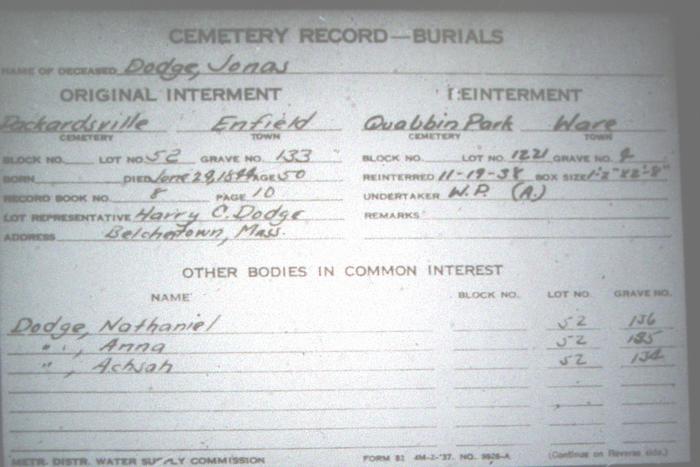 CEMETERY RECORD—BURIALS
NAME OF DECEASED Dodge, Jonas
ORIGINAL INTERMENT REINTERMENT
Packardsville Enfield Quabbin Park Ware
CEMETERY TOWN CEMETERY TOWN
BLOCK NO. LOT NO. 52 GRAVE NO. 133 BLOCK NO. LOT NO. 1221 GRAVE NO.
BORN DIED June AGE 50 REINTERRED 11-19-38 BOX SIZE
RECORD BOOK NO. 8 PAGE 10 UNDERTAKER W.P. (A.)
LOT REPRESENTATIVE Harry C. Dodge REMARKS
ADDRESS Belchertown, Mass.
OTHER BODIES IN COMMON INTEREST
NAME BLOCK NO. LOT NO. GRAVE NO.
Dodge, Nathaniel 52 136
" , Anna 52
" , Achsah 52 134
METR. DISTR. WATER SUPPLY COMMISSION FORM 82 4M-2-'37. NO. (Continue on Reverse side.)